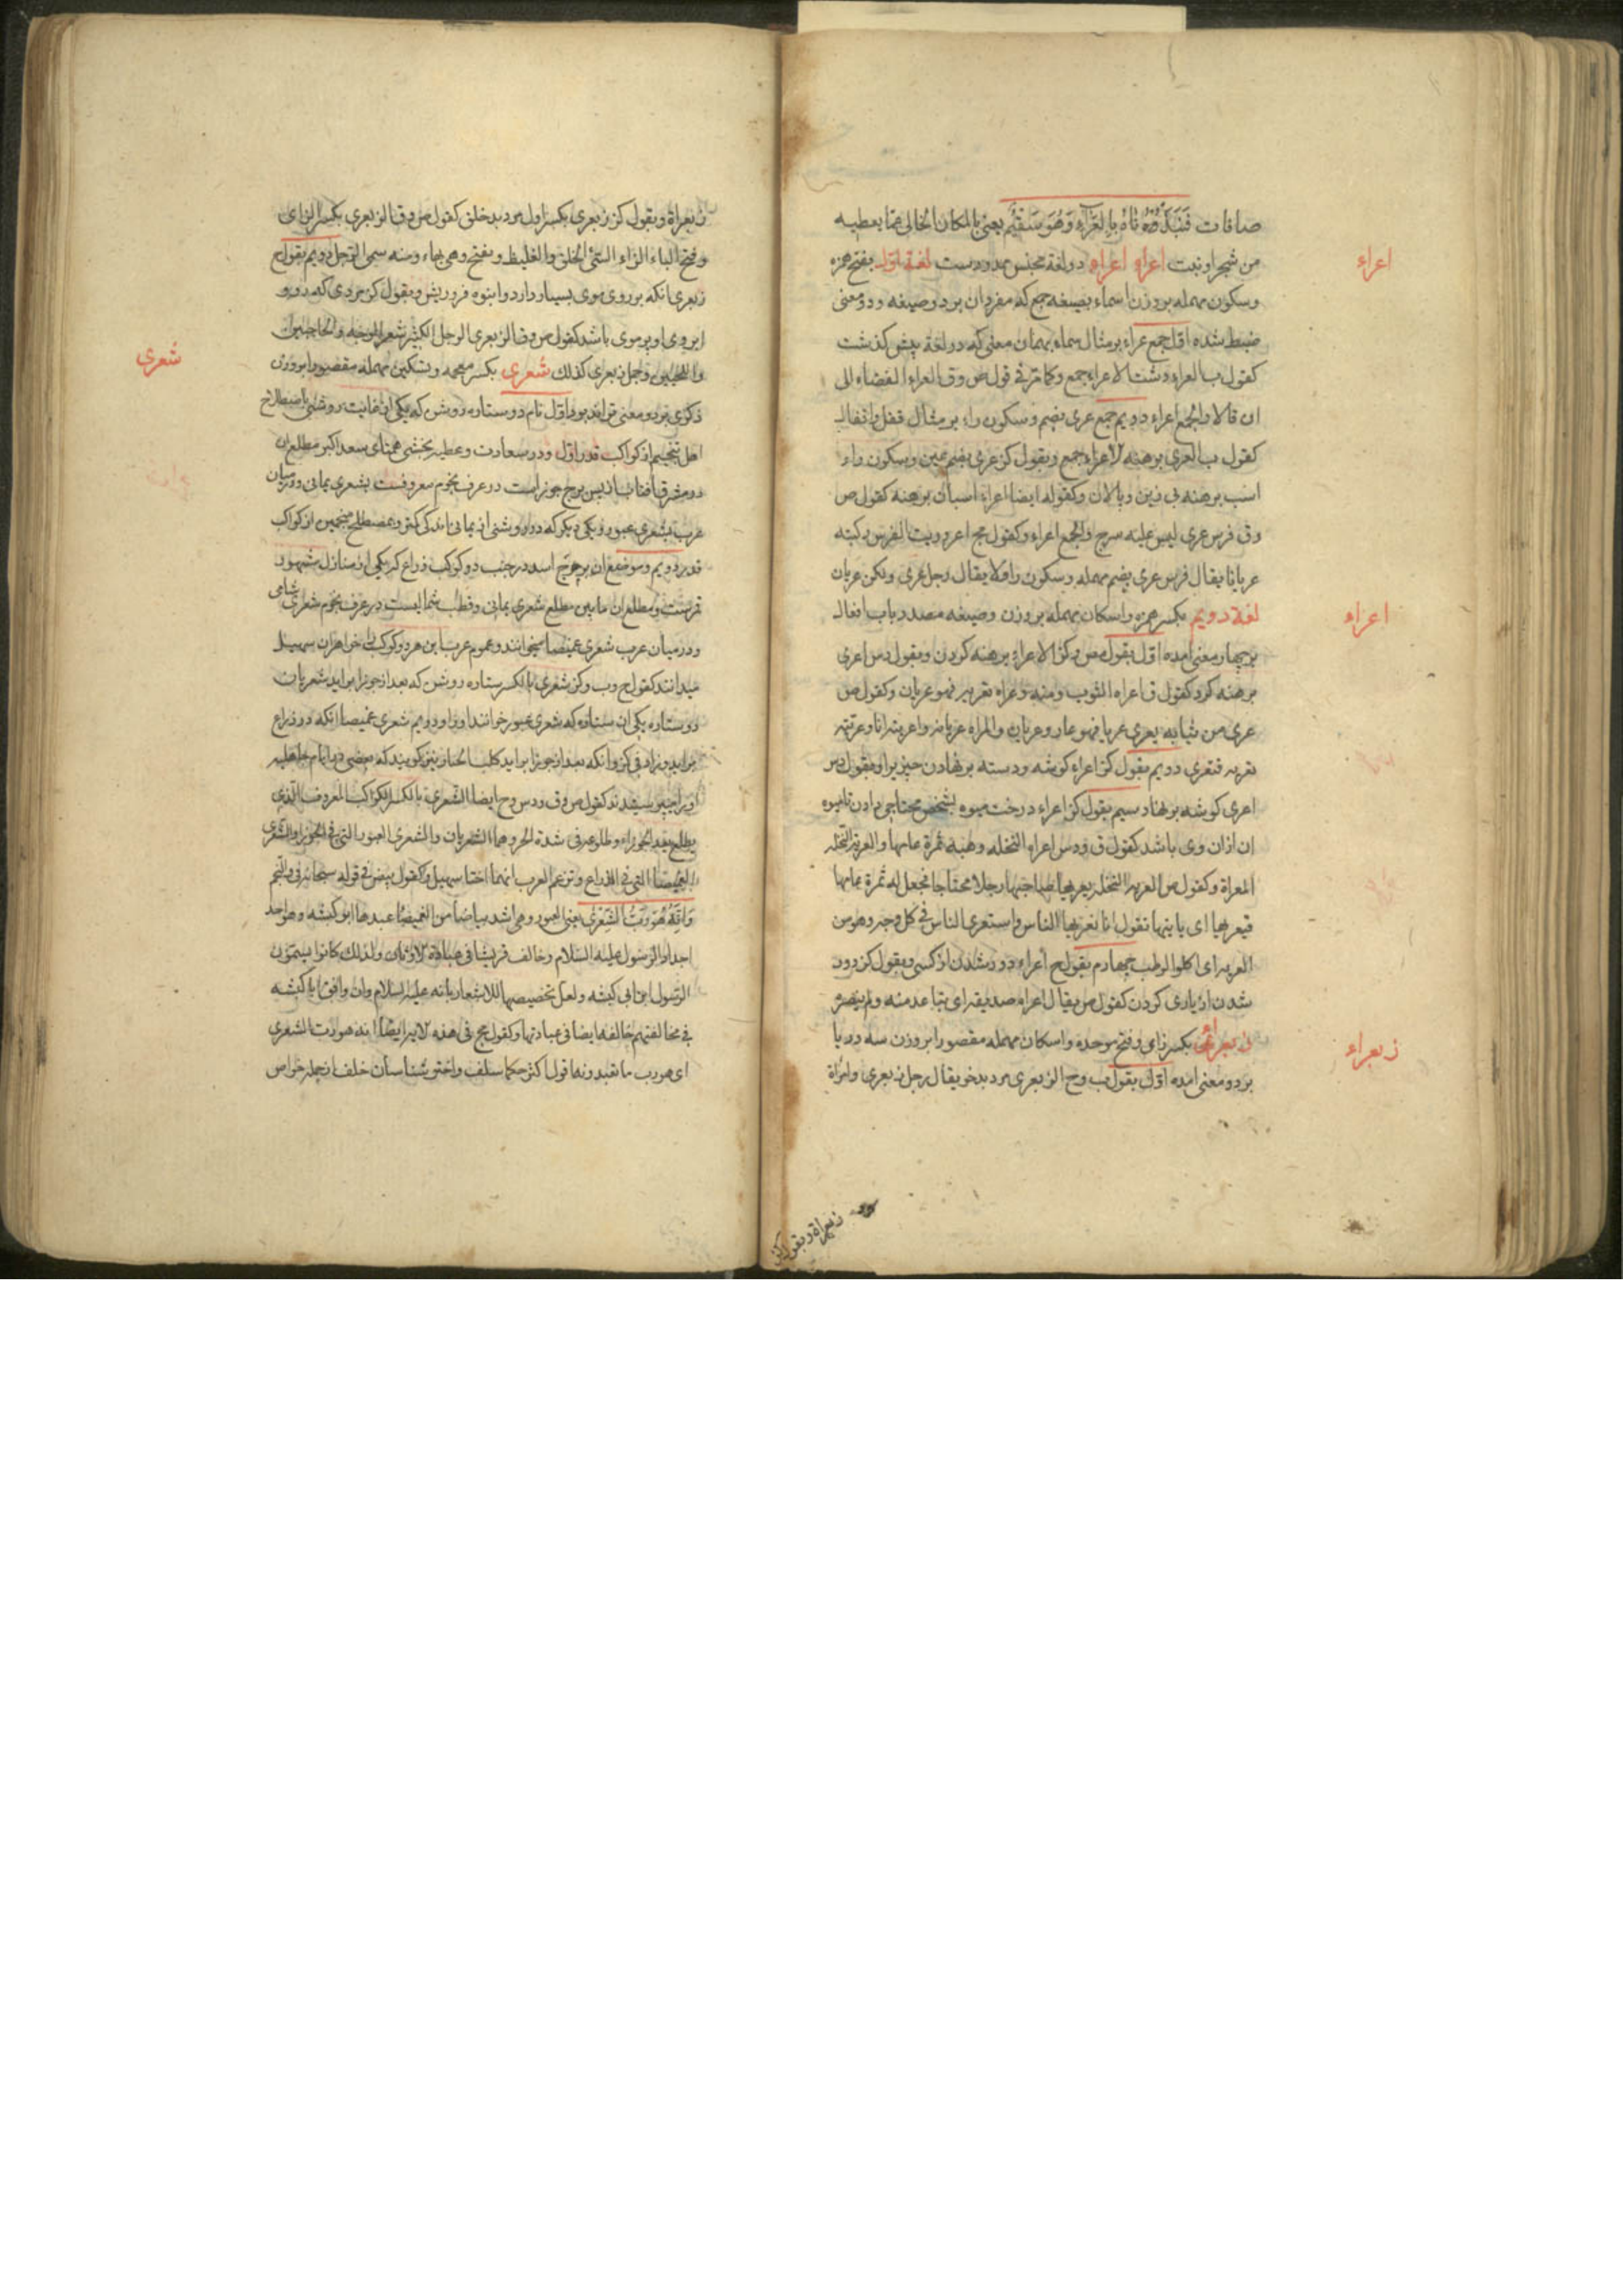 صافات فَنَبَذْنَاهُ بِالعَرَاءِ وَهُوَ سَقِيمٌ يعنى بالمكان الخالى عما يعطيه
من شجر او نبت اعراء اعراء دو لغة مجنس ممدودست لغة اول بفتح همزه
اعراء
وسكون مهمله بر وزن اسماء بصيغه جمع كه مفرد ان بر دو صيغه ودو معنى
ضبط شده اول جمع عراء بر مثال سماء بهمان معنى كه دو لغة پيش كذشت
كقول ب العراء دشت الاعراء جمع وكما مر فى قول ص وق العراء الفضاء الى
ان قالا والجمع اعراء دويم جمع عرى بضم وسكون راء بر مثال قفل واقفال
كقول ب العرى برهنه الاعراء جمع وبقول كنز عرى بضم عين وسكون راء
اسب برهنه بى زين وپالان وكقوله ايضا اعراء اسبان برهنه كقول ص
وق فرس عرى ليس عليه سرج والجمع اعراء وكقول مج اعروريت الفرس ركبته
عريانا يقال فرس عرى بضم مهمله وسكون را ولا يقال رجل عرى ولكن عريان
لغة دويم بكسر همزه واسكان مهمله بر وزن وصيغه مصدر باب افعال
اعراء
بر چهار معنى امده اول بقول مص وكنز الاعراء برهنه كردن وبقول دس اعرى
برهنه كرد كقول ق اعراه الثوب ومنه وعراه تعريه فهو عريان وكقول ص
عرى من ثيابه يعرى عريا فهو عار وعريان والمراه عريانه واعريته انا وعريته
تعريه فتعرى دويم بقول كنز اعراء كوشه ودسته بر نهادن چيزيرا وبقول دس
اعرى كوشه بر نهاد سيم بقول كنز اعراء درخت ميوه بشخص محتاجى دادن تا ميوه
ان ازان وى باشد كقول ق ودس اعراء النخله وهبه ثمرة عامها والعرية النخله
المعراة وكقول ص العريه النخله يعريها صاحبها رجلا محتاجا فيجعل له ثمرة عامها
فيعريها اى ياتيها نقول انا نعريها الناس واستعرى الناس فى كل وجه وهو من
العريه اى اكلوا الرطب چهارم بقول ح اعراء دور شدن از كسى وبقول كنز دور
شدن از يارى كردن كقول ص يقال اعراه صديقه اى تباعد منه ولم ينصره
زبعرى بكسر زاى وفتح موحده واسكان مهمله مقصورا بر وزن سه دريا
زبعراء
بر دو معنى امده اول بقول ب وح الزبعرى مرد بدخو يقال رجل زبعرى وامراة
زبعراة وبقول كنز
زبعراة وبقول كنز زبعرى بكسر اول مرد بد خلق كقول ص وق الزبعرى بكسر الزاى
وفتح الباء والراء السئ الخلق والغليظ ويفتح وهى بهاء ومنه سمى الرجل دويم بقول ح
زبعرى انكه بر روى موى بسيار دارد وانبوه فرو ريش وبقول كنز مردى كه در رو
ابروى او پر موى باشد كقول ص وق الزبعرى الرجل الكثير شعر الوجه والحاجبين
واللحيين وجمل زبعرى كذلك شعرى بكسر معجمه وتسكين مهمله مقصورا بر وزن
شعرى
ذكرى بر دو معنى تواند بود اول نام دو ستاره روشن كه يكى ازان غايت روشنى باصطلاح
اهل تنجيم از كواكب قدر اول ودر سعادت وعطيه بخشى همتاى سعد اكبر مطلع ان
در مشرق افتاب از پس برج جوزاست در عرف نجوم معروفست بشعرى يمانى ودر ميان
عرب بشعرى عبور ويكى ديكر كه در روشنى از يمانى اندكى كمتر وبمصطلح منجمين از كواكب
قدر دويم وموضع ان برج اسد در جنب دو كوكب ذراع كه يكى از منازل مشهور
قمرست ومطلع ان ما بين مطلع شعرى يمانى وقطب شماليست در عرف نجوم شعراى شامى
ودر ميان عرب شعرى غميصا ميخوانند وعموم عرب اين هر دو كوكب را خواهران سهيل
ميدانند كقول ح وب وكنز شعرى بالكسر ستاره روشن كه بعد از جوزا برايد شعريان
دو ستاره يكى ان ستاره كه شعرى عبور خوانند او را ودويم شعرى غميصا انكه در ذراع
برايد وزاد فى كنز وانكه بعد از جوزا برايد كلب الجبار نيز كويند كه بعضى در ايام جاهليه
او را ميپرستيدند كقول ص وق ودس وح ايضا الشعرى بالكسر الكوكب المعروف الذى
يطلع بعد الجوزاء وطلوعه فى شدة الحر وهما الشعريان والشعرى العبور التى فى الجوزا والشعرى
الغميصا التى فى الذراع وتزعم العرب انهما اختا سهيل وكقول بيض فى قوله سبحانه فى والنجم
وَاَنَّهُ هُوَ رَبُّ الشِّعْرى يعنى العبور وهى اشد بياضا من الغميصا عبدها ابو كبشه وهو احد
اجداد الرسول عليه السلام وخالف قريشا فى عبادة الاوثان ولذلك كانوا يسمون
الرسول ابن ابى كبشه ولعل تخصيصها للاشعار بانه عليه السلام وان وافق ابا كبشه
فى مخالفتهم خالفه ايضا فى عبادتها وكقول مج فى هذه الايه ايضا انه هو رب الشعرى
اى هو رب ما تعبدونه اقول اكثر حكما سلف واختر شناسان خلف از جمله خواص